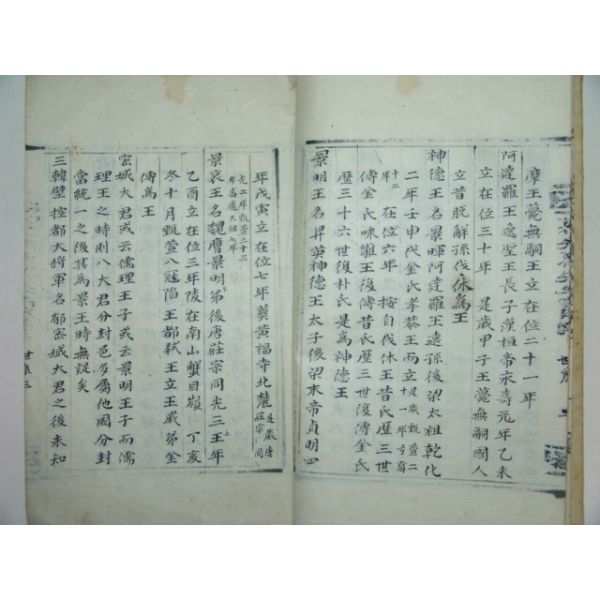 摩王薨無嗣王立在位二十一年
阿達羅王逸聖王長子漢桓帝永壽元年乙未
立在位三十年 是歲甲子王薨無嗣國人
立昔脫解孫伐休爲王
神德王名景暉阿達羅王遠孫後梁太祖乾化
二年壬申代金氏孝恭王而立 是歲甄萱二十一年弓裔
十二年 在位六年 按自伐休王昔氏歷三世
傳金氏味鄒王復傳昔氏歷三世復傳金氏
歷三十六世復朴氏是爲神德王
景明王名昇英神德王太子後梁末帝貞明四
年戊寅立在位七年葬黃福寺北麓 是歲唐莊宗同
光二年甄萱三十三年高麗太祖七年
景哀王名魏膺景明第後唐莊宗同光三年
乙酉立在位三年陵在南山蟹目嶺 丁亥
冬十月甄萱入冠陷王都弑王立王戚弟金
傅爲王
密城大君或云儒理王子或云景明王子而儒
理王之時則八大君分封邑多屬他國分封
當統一之後其爲景王時無疑矣
三韓壁控都大將軍名郁密城大君之後未知
世系 三